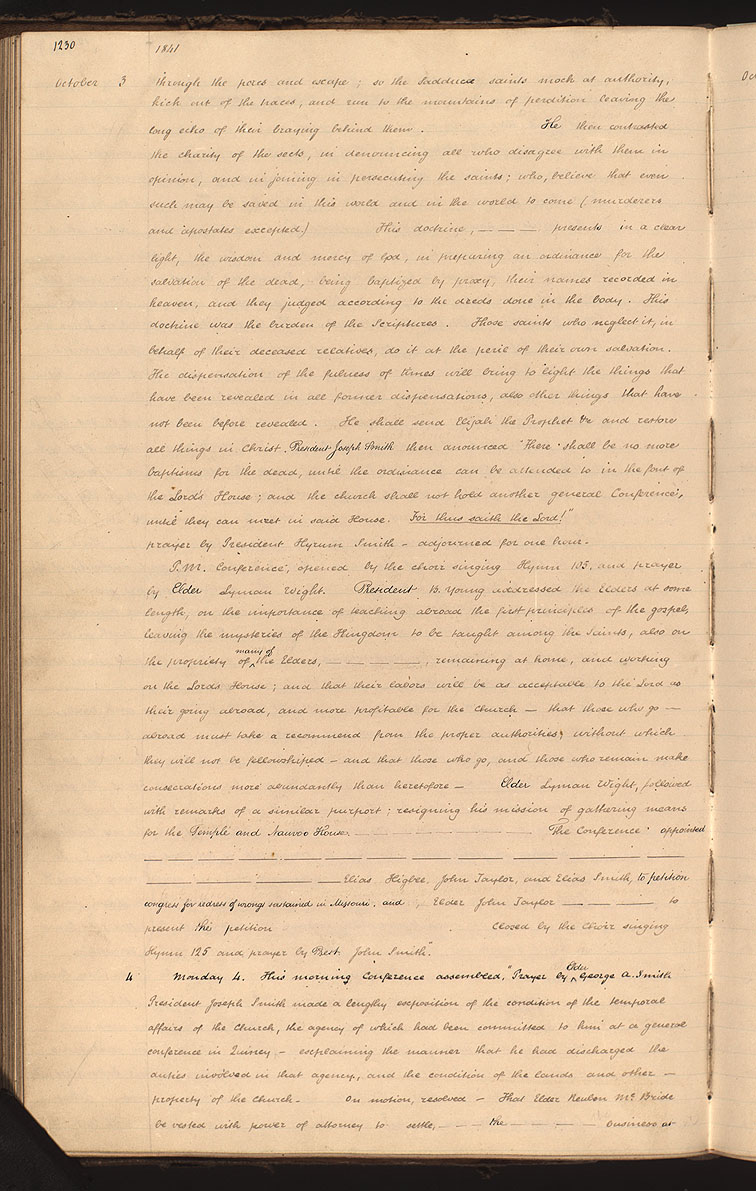 1230 1841
October 3 through the pores and escape; so the Sadducee saints mock at authority,
kick out of the traces, and run to the mountains of perdition leaving the
long echo of their braying behind them. He then contrasted
the charity of the sects, in denouncing all who disagree with them in
opinion, and in joining in persecuting the saints; who, believe that even
such may be saved in this world and in the world to come (murderers
and apostates excepted.) This doctrine, — — — presents in a clear
light, the wisdom and mercy of God, in preparing an ordinance for the
salvation of the dead, being baptized by proxy, their names recorded in
heaven, and they judged according to the deeds done in the body. This
doctrine was the burden of the Scriptures. Those saints who neglect it, in
behalf of their deceased relatives, do it at the peril of their own salvation.
The dispensation of the fulness of times will bring to light the things that
have been revealed in all former dispensations, also other things that have
not been before revealed. He shall send Elijah the Prophet &c and restore
all things in Christ. President Joseph Smith then anounced "There shall be no more
baptisms for the dead, until the ordinance can be attended to in the font of
the Lord's House; and the church shall not hold another general Conference,
until they can meet in said House. For thus saith the Lord!"
prayer by President Hyrum Smith – adjourned for one hour.
P.M. Conference, opened by the choir singing Hymn 105, and prayer
by Elder Lyman Wight. President B. Young addressed the Elders at some
length, on the importance of teaching abroad the first principles of the gospel,
leaving the mysteries of the Kingdom to be taught among the Saints, also on
the propriety of many of the Elders, — — — —, remaining at home, and working
on the Lord's House; and that their labors will be as acceptable to the Lord as
their going abroad, and more profitable for the Church – that those who go –
abroad must take a recommend from the proper authorities, without which
they will not be fellowshiped – and that those who go, and those who remain make
consecrations more abundantly than heretofore – Elder Lyman Wight, followed
with remarks of a similar purport; resigning his mission of gathering means
for the Temple and Nauvoo House. The Conference appointed
Elias Higbee, John Taylor, and Elias Smith, to petition
congress for redress of wrongs sustained in Missouri. and, Elder John Taylor — — — — to
present the petition Closed by the Choir singing
Hymn 125 and prayer by Pest. John Smith".
4 Monday 4. This morning Conference assembled. "Prayer by Elder George A. Smith
President Joseph Smith made a lengthy exposition of the condition of the temporal
affairs of the Church, the agency of which had been committed to him at a general
conference in Quincy – explaining the manner that he had discharged the
duties involved in that agency, and the condition of the lands and other –
property of the Church – On motion, resolved – That Elder Reuben Mc Bride
be vested with power of attorney to settle, — — the — — — business at
Oct